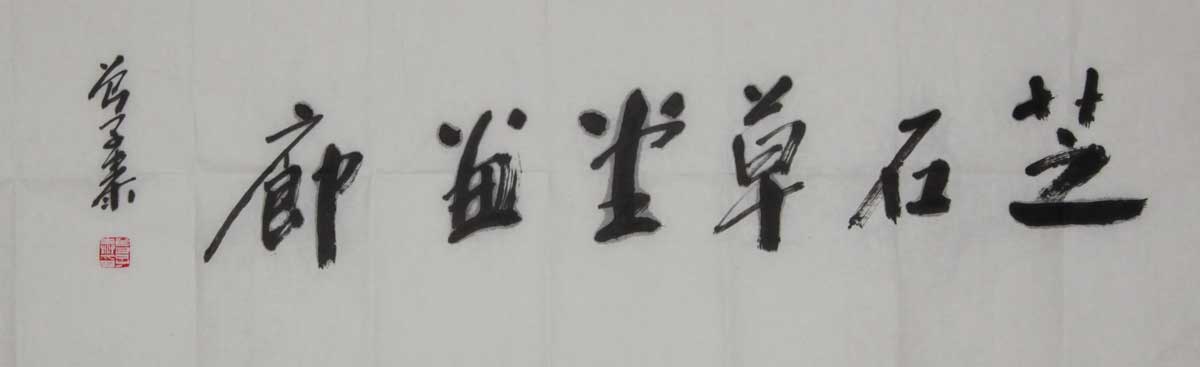 芝石草堂画廊